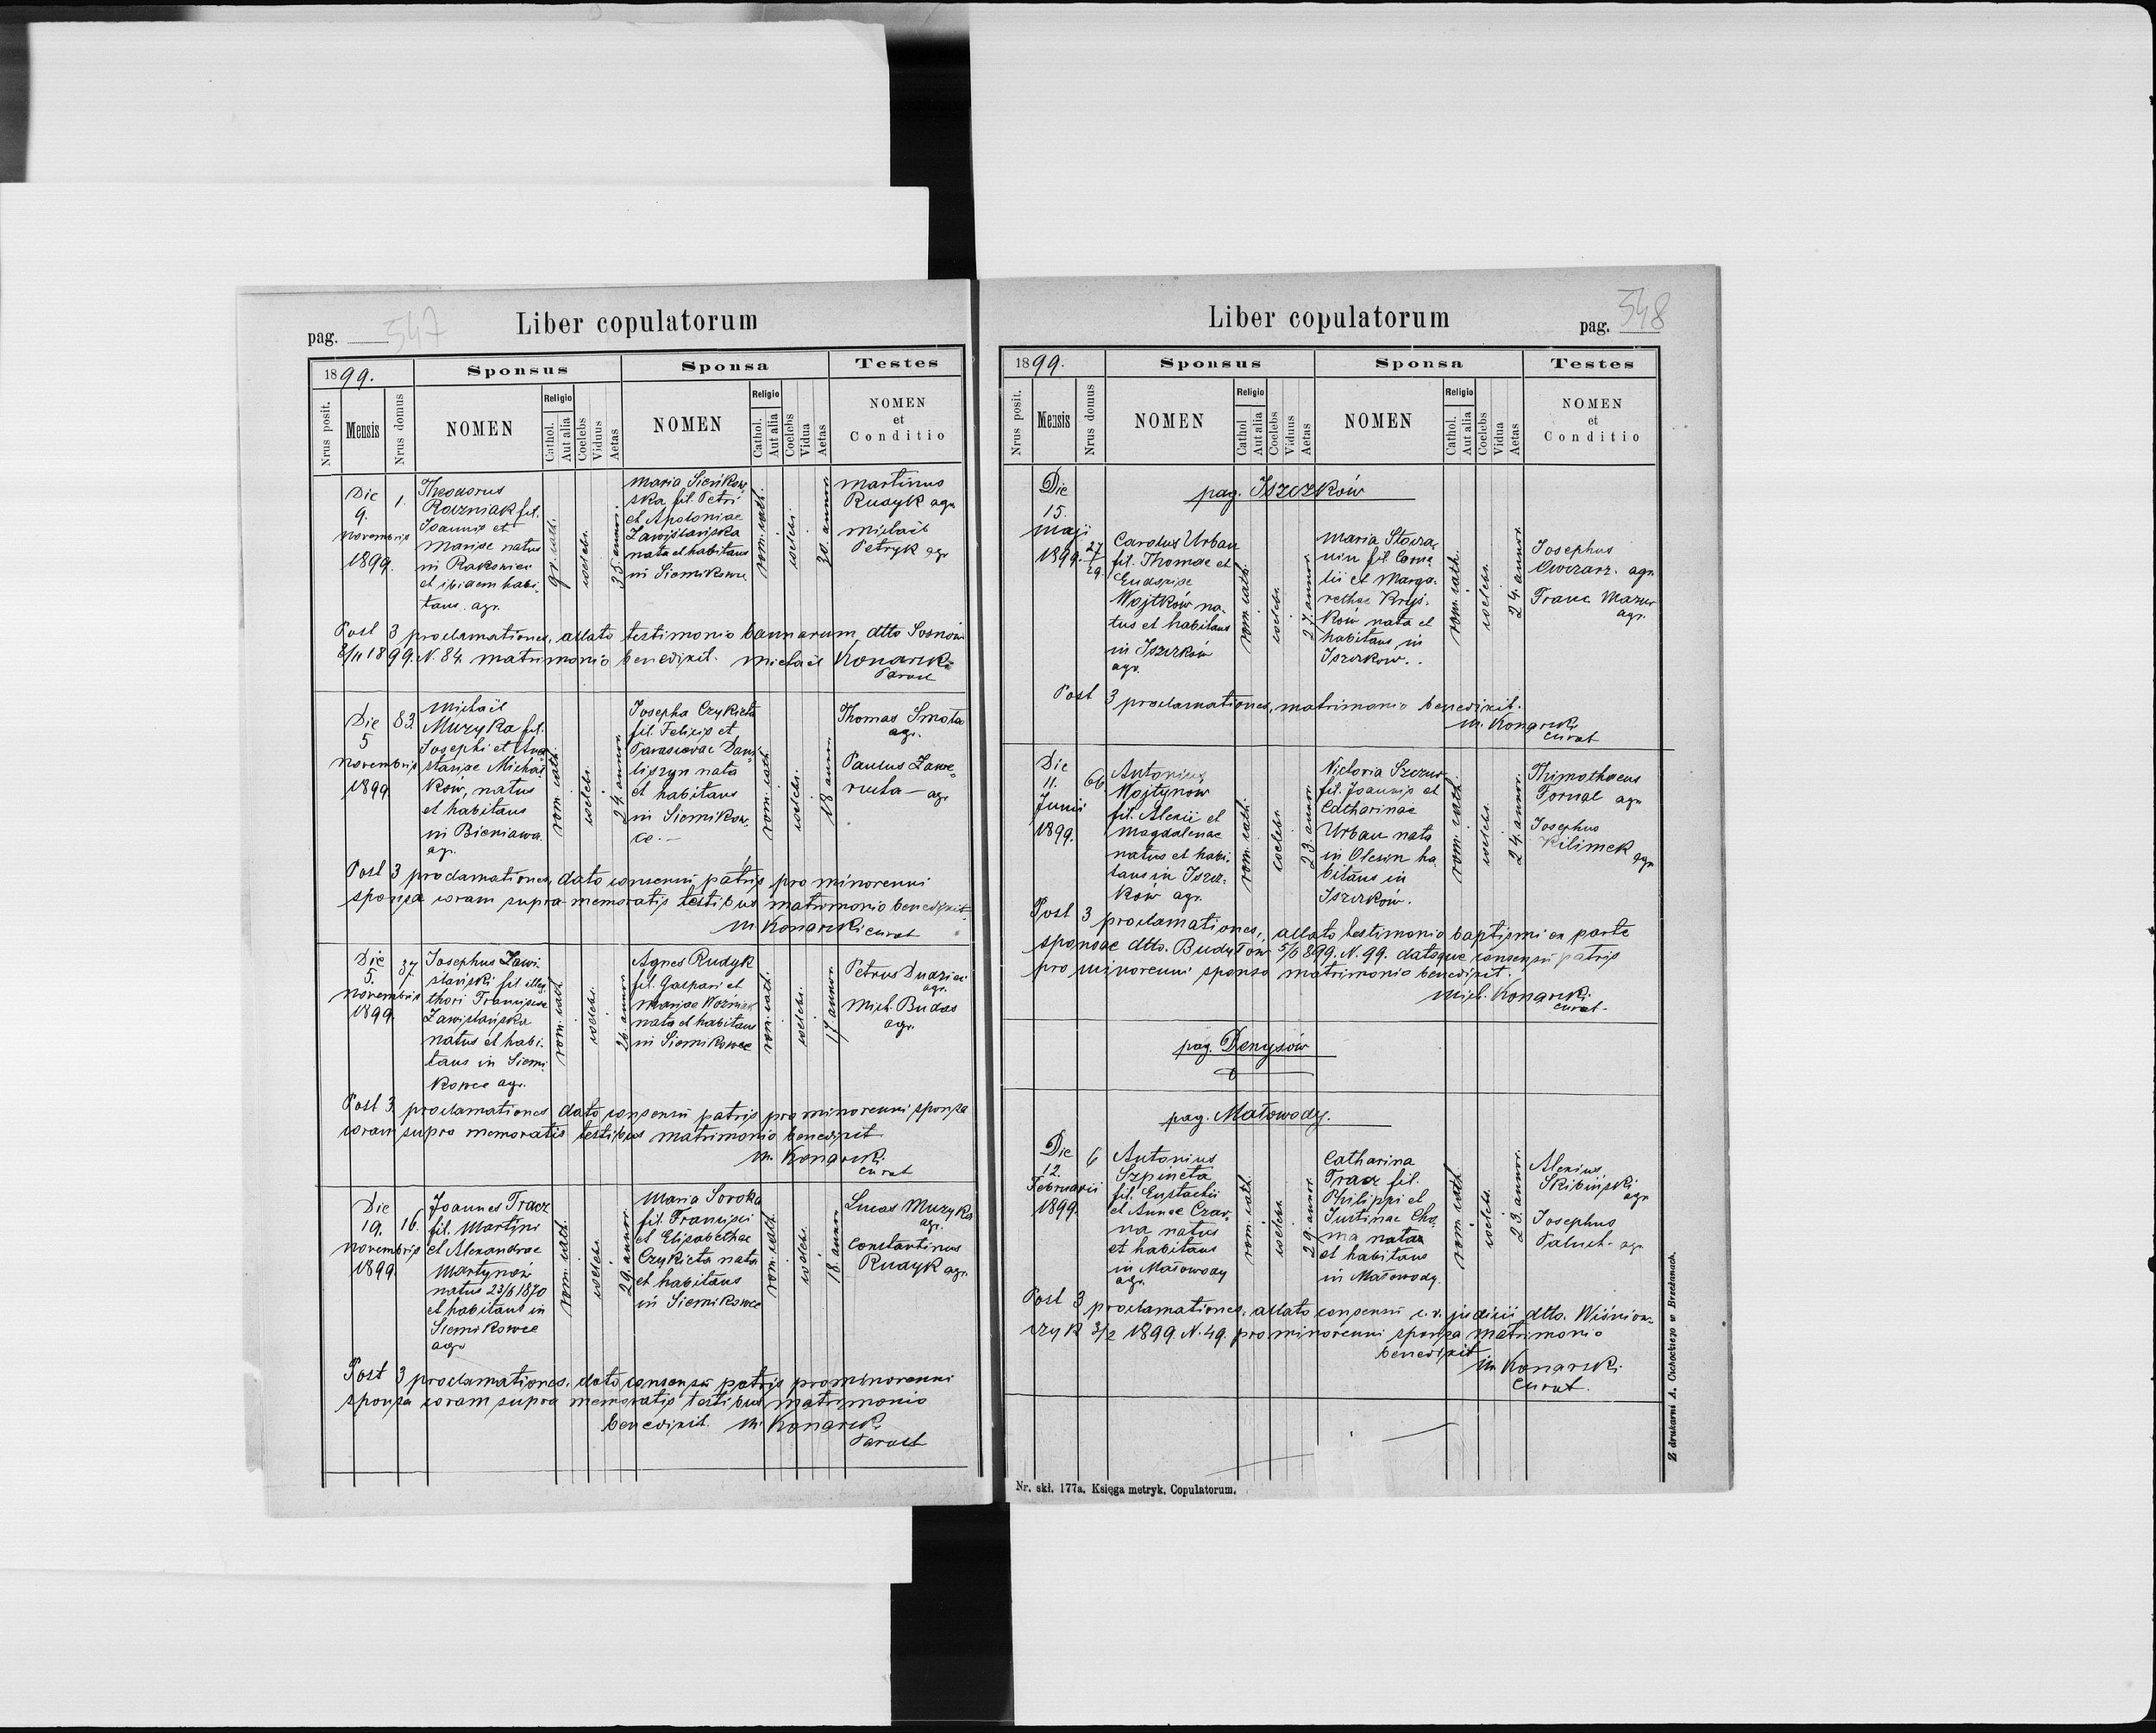 pag. 547
Liber copulatorum
1899.
Sponsus
Sponsa
Testes
Nrus posit.
Mensis
Nrus domus
NOMEN
Religio
Cathol.
Aut alia
Coelebs
Viduus
Aetas
NOMEN
Religio
Cathol.
Aut alia
Coelebs
Vidua
Aetas
NOMEN
et
Conditio
Die
9.
Novembris
1899.
1.
Theodorus
fil.
Joannis et
Mariae natus
in Rakowiec
et ibidem habi-
tans. agr.
gr. cath.
coelebs.
35. annor.
Maria Sieńkow-
ska fil. Petri
et Apoloniae
Zawiślańska
nata et habitans
in Siemikowce
rom. cath.
coelebs.
30. annor.
Martinus
Rudyk agr.
Michaël
Petryk agr.
Post 3 proclamationes, allato testimonio bannorum dtto Sosnów
8/11 1899. N. 84. matrimonio benedixit. Michaël Konarski
Paroch
Die
5
Novembris
1899.
83.
Michaël
Muzyka fil.
Josephi et Ana-
stasiae Michał-
ków, natus
et habitans
in Bieniawa.
agr.
rom. cath.
coelebs.
24. annor.
Josepha Czykieta
fil. Felicis et
Parascevae Dani-
liszyn nata
et habitans
in Siemikow-
ce. —
rom. cath.
coelebs.
18 annor.
Thomas Smoła
agr.
Paulus Zawe-
rucha — agr.
Post 3 proclamationes, dato consensu patris pro minorenni
sponsa coram supra memoratis testibus matrimonio benedixit.
M. Konarski curat
Die
5.
Novembris
1899.
37.
Josephus Zawi-
ślański fil illegi-
thori Franciscae
Zawiślańska
natus et habi-
tans in Siemi-
kowce agr.
rom. cath.
coelebs.
26. annor.
Agnes Rudyk
fil. Gaspari et
Mariae Woźniak
nata et habitans
in Siemikowce
rom. cath.
coelebs.
17 annor.
Petrus Dudziec
agr.
Mich. Budas
agr.
Post 3 proclamationes dato consensu patris pro minorenni sponsa
coram supra memoratis testibus matrimonio benedixit
M. Konarski
curat
Die
19.
Novembris
1899.
16.
Joannes Tracz
fil. Martini
et Alexandrae
Martynów
natus 23/6 1870
et habitans in
Siemikowce
agr.
rom. cath.
coelebs.
29. annor.
Maria Soroka
fil. Francisci
et Elisabethae
Czykieta nata
et habitans
in Siemikowce
rom. cath.
coelebs.
18. annor.
Lucas Muzyka
agr.
Constantinus
Rudyk agr.
Post 3 proclamationes, dato consensu patris pro minorenni
sponsa coram supra memoratis testibus matrimonio
benedixit. M. Konarski
Paroch
Liber copulatorum
pag. 548
1899.
Sponsus
Sponsa
Testes
Nrus posit.
Mensis
Nrus domus
NOMEN
Religio
Cathol
Aut alia
Coelebs
Viduus
Aetas
NOMEN
Religio
Cathol.
Aut alia
Coelebs
Vidua
Aetas
NOMEN
et
Conditio
pag. Iszczków
Die
15.
Maji
1899.
27
29.
Carolus Urban
fil. Thomae et
Eudoxiae
Wojtków na-
tus et habitans
in Iszczków
agr.
rom. cath.
coelebs.
27. annor.
Maria
fil Corne-
lii et Marga-
rethae Kryś-
ków nata et
habitans in
Iszczków..
rom. cath.
coelebs.
24. annor.
Josephus
Owczarz. agr.
Franc Mazur
agr.
Post 3 proclamationes, matrimonio benedixit.
M. Konarski
curat
Die
11.
Junii
1899.
66.
Antonius
Wojtynów
fil. Alexii et
Magdalenae
natus et habi-
tans in Iszcz-
ków agr.
rom. cath.
coelebs.
23. annor.
Victoria Szczur
fil. Joannis et
Catharinae
Urban nata
in Olesin ha-
bitans in
Iszczków.
rom. cath.
coelebs.
24. annor.
Thimothaeus
Fornal agr.
Josephus
Kilimek agr.
Post 3 proclamationes, allato testimonio baptismi ex parte
sponsae dtto. Budyłów 5/6 899. N. 99. datoque consensu patris
pro minorenni sponso matrimonio benedixit.
Mich. Konarski
curat.
pag. Denysów
pag. Małowody.
Die
12.
Februarii
1899.
6
Antonius
Szpineta
fil. Eustachii
et Annae Czar-
na natus
et habitans
in Małowody
agr.
rom. cath.
coelebs.
29. annor.
Catharina
Tracz fil.
Philippi et
Justinae Cho-
ma nata
et habitans
in Małowody.
rom. cath.
coelebs.
23. annor.
Alexius
Skibiński
agr.
Josephus
Paluch. agr.
Post 3 proclamationes, allato consensu c. r. judicii dtto. Wiśniow-
czyk 3/2 1899. N. 49. pro minorenni sponsa matrimonio
benedixit
M. Konarski
curat.
Nr. skł. 177a. Księga metryk. Copulatorum.
Z drukarni A. Cuchockiego w Brzeżanach.